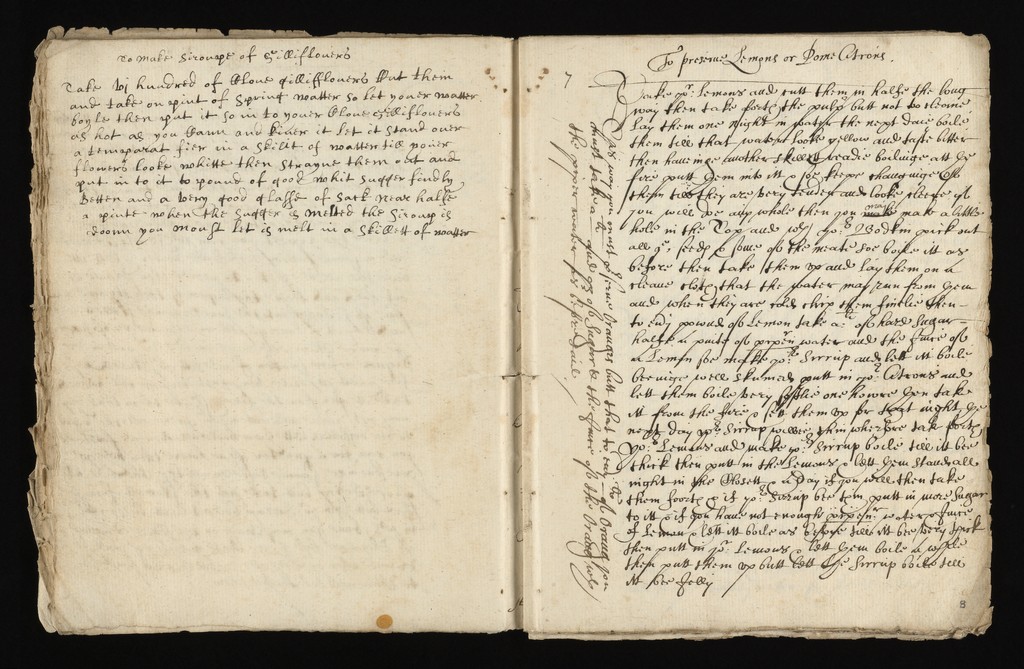 To make Sirroupe of Gilliflouers
Take vj hundred of Cloue gilliflouers Cut them
and take on pint of Spring watter so let youer watter
boyle then put it so in to youer Cloue Gilliflouers
as hot as you Cann and Couer it let it stand ouer
a temparat fier in a Skilit of watter till youer
flouers looke whitte then Strayne them out and
put in to it to pound of good whit Sugger findly
Betten and a very good glasse of Sack near halfe
a pinte when the Sugger is melted the Siroup is
doonn you moust let is melt in a Skillett of watter
To preserue Lemons or Pome Citrons.
7
Take yor. Lemons and cutt them in halfe the long
way then take forth the pulp butt not to cleane
lay them one night in water the next daie boile
them till that water looke yellow and taste bitter
then haueinge another skillett readie boileinge att ye
fire putt them into itt & soe keepe chaungeinge off
them till they are very tender and looke cleere if
you will doe any whole then you must make a little
hole in the Top and wth yor. Bodkin pick out
all ye. seeds & some of the meate soe boyle itt as
before then take them vp and lay them on a
cleane cloth that the water may run from them
and when they are cold chip them finelie then
to euery pound of Lemon take a li: of hard Sugar
halfe a pinte of pippin water and the Juice of
a Lemon soe make yor. Sirrup and lett itt boile
beeinge well skumed putt in yor. Citrons and
lett them boile very softlie one howre then take
itt from the fire & sett them vp for that night, ye
next day yor. Sirrup will bee thin wherfore take forth
yor. Lemons and make yor. Sirrup boile till itt bee
thick then putt in the Lemons & lett them stand all
night in the Closett & a day if you will then take
them foorth & if yor. Sirrup bee thin putt in more Sugar
to itt & if you haue not enough pippin water & Juice
of Lemon & lett itt boile as before till itt bee very thick
then putt in yor. Lemons & lett them boile a while
then putt them vp butt lett the Sirrup boile till
itt bee Jelly
This way you must preserue Oranges butt that to euery li: of Orang you
must take a li: and of Sugar & the Juice of the Orang wth
the pippin water as before said.
8